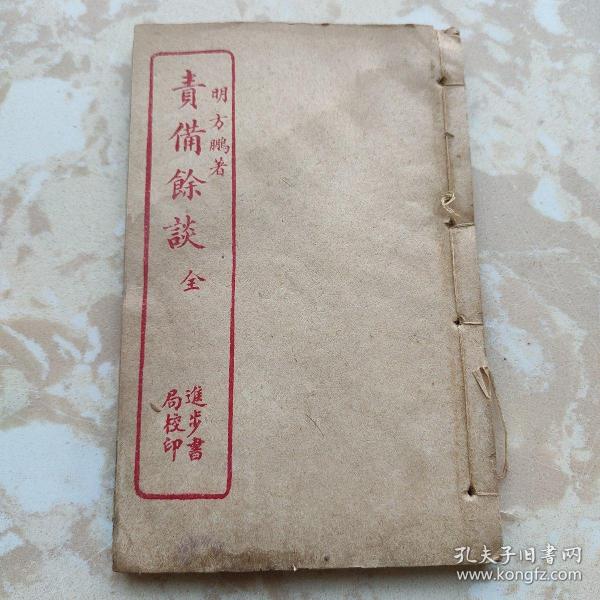 明方鵬著
責備餘談 全
進步書
局校印
孔夫子旧書网
www.kongfz.com